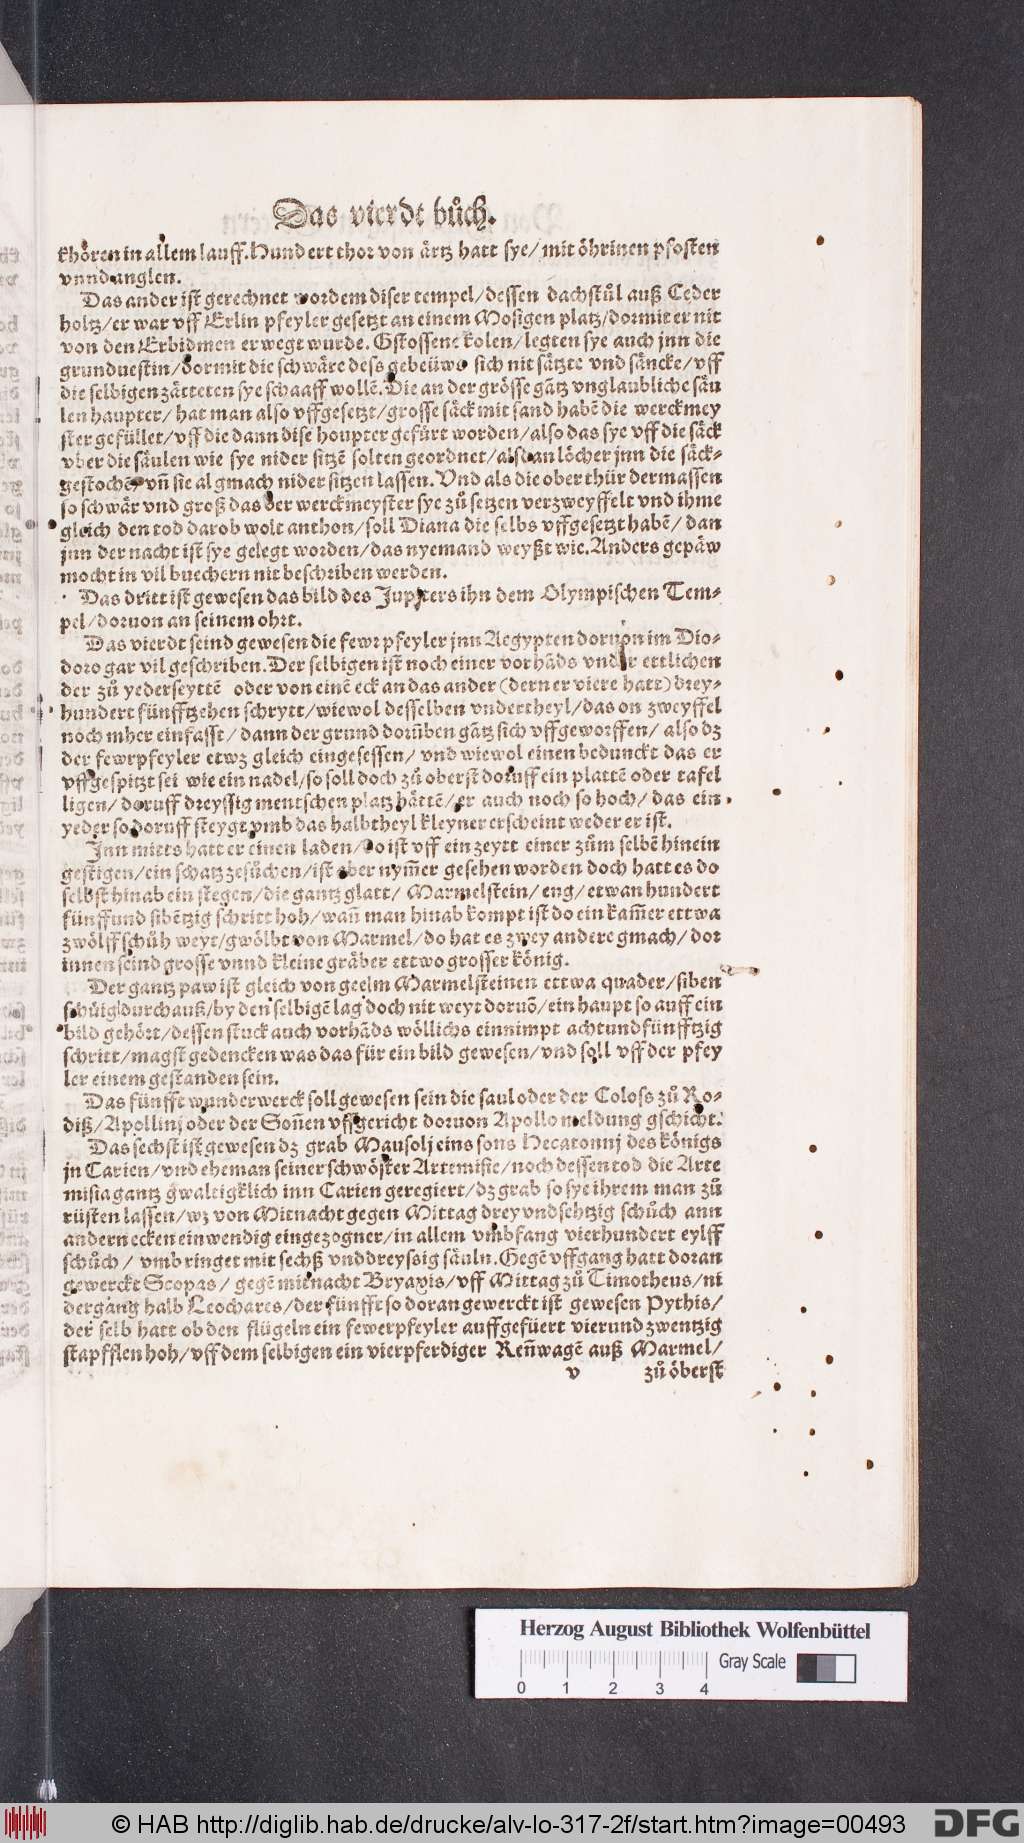 Das vierdt bůch.
khören in allem lauff. Hundert thor von ärtz hatt sye/ mit öhrinen pfosten
vnnd anglen.
Das ander ist gerechnet wordem diser tempel/ dessen dachstůl auß Ceder
holtz/ er war vff Erlin pfeyler gesetzt an einem Mosigen platz/ dormit er nit
von den Erbidmen erwegt wurde. Gstossene kolen/ legten sye auch jnn die
grunduestin/ dormit die schwäre dess gebeüws sich nit sätzte vnd säncke/ vff
die selbigen zätteten sye schaaff wollē. Die an der grösse gātz vnglaubliche säu
len haupter/ hat man also vffgesetzt/ grosse säck mit sand habē die werckmey
ster gefüllet/ vff die dann dise houpter gefůrt worden/ also das sye vff die säck
vber die säulen wie sye nider sitzē solten geordnet/ alsdan löcher jnn die säck-
gestochē/ vn̄ sie al gmach nider sitzen lassen. Vnd als die ober thür dermassen
so schwär vnd groß das der werckmeyster sye zů setzen verzweyffelt vnd ihme
gleich den tod darob wolt anthon/ soll Diana die selbs vffgesetzt habē/ dan
jnn der nacht ist sye gelegt worden/ das nyemand weyßt wie. Anders gepäw
mocht in vil buechern nit beschriben werden.
Das dritt ist gewesen das bild des Jupiters ihn dem Olympischen Tem-
pel/ doruon an seinem ohrt.
Das vierdt seind gewesen die fewr pfeyler jnn Aegypten doruon im Dio-
doro gar vil geschriben. Der selbigen ist noch einer vorhāds vnder ettlichen
der zů yederseyttē oder von einē eck an das ander (dern er viere hatt) drey-
hundert fünfftzehen schrytt/ wiewol desselben vndertheyl/ das on zweyffel
noch mher einfasst/ dann der grund dorüben gātz sich vffgeworffen/ also dz
der fewrpfeyler etwz gleich eingesessen/ vnd wiewol einen bedunckt das er
vffgespitzt sei wie ein nadel/ so soll doch zů oberst doruff ein plattē oder tafel
ligen/ doruff dreyssig mentschen platz hättē/ er auch noch so hoch/ das ein
yeder so doruff steygt vmb das halbtheyl kleyner erscheint weder er ist.
Jnn mitts hatt er einen laden/ do ist vff ein zeytt einer zům selbē hinein
gestigen/ ein schatz zesůchen/ ist aber nym̄er gesehen worden doch hatt es do
selbst hinab ein stegen/ die gantz glatt/ Marmelstein/ eng/ etwan hundert
fünffund sibētzig schritt hoh/ wan̄ man hinab kompt ist do ein kam̄er ettwa
zwölff schůh weyt/ gwölbt von Marmel/ do hat es zwey andere gmach/ dor
innen seind grosse vnnd kleine gräber ettwo grosser könig.
Der gantz paw ist gleich von geelm Marmelsteinen ettwa quader/ siben
schůig durch auß/ by den selbigē lag doch nit weyt doruō/ ein haupt so auff ein
bild gehört/ dessen stuck auch vorhāds wöllichs einnimpt achtund fünfftzig
schritt/ magst gedencken was das für ein bild gewesen/ vnd soll vff der pfey
ler einem gestanden sein.
Das fünfft wunderwerck soll gewesen sein die saul oder der Coloss zů Ro-
diß/ Apollinis oder der Son̄en vffgericht doruon Apollo meldung gschicht.
Das sechst ist gewesen dz grab Mausolj eins sons Hecatonnj des königs
jn Carien/ vnd eheman seiner schwöster Artemisie/ noch dessen tod die Arte
misia gantz gwaltigklich inn Carien geregiert/ dz grab so sye ihrem man zů
rüsten lassen/ wz von Mitnacht gegen Mittag drey vnd sehtzig schůch ann
andern ecken einwendig eingezogner/ in allem vmbfang vierhundert eylff
schůch/ vmbringet mit sechß vnddreyssig säuln. Gegē vffgang hatt doran
gewerckt Scopas/ gegē mitnacht Bryaxis/ vff Mittag zů Timotheus/ ni
dergang halb Leochares/ der fünfft so doran gewerckt ist gewesen Pythis/
der selb hatt ob den flügeln ein fewerpfeyler auffgefüert vierund zwentzig
stapfflen hoh/ vff dem selbigen ein vierpferdiger Ren̄wagē auß Marmel/
v zů öberst
Herzog August Bibliothek Wolfenbüttel
Gray Scale
0 1 2 3 4
© HAB http://diglib.hab.de/drucke/alv-lo-317-2f/start.htm?image=00493
DFG